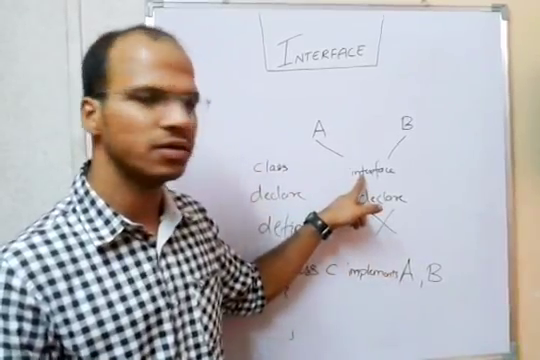 INTERFACE
A B
class interface
declare declare
C implements A, B